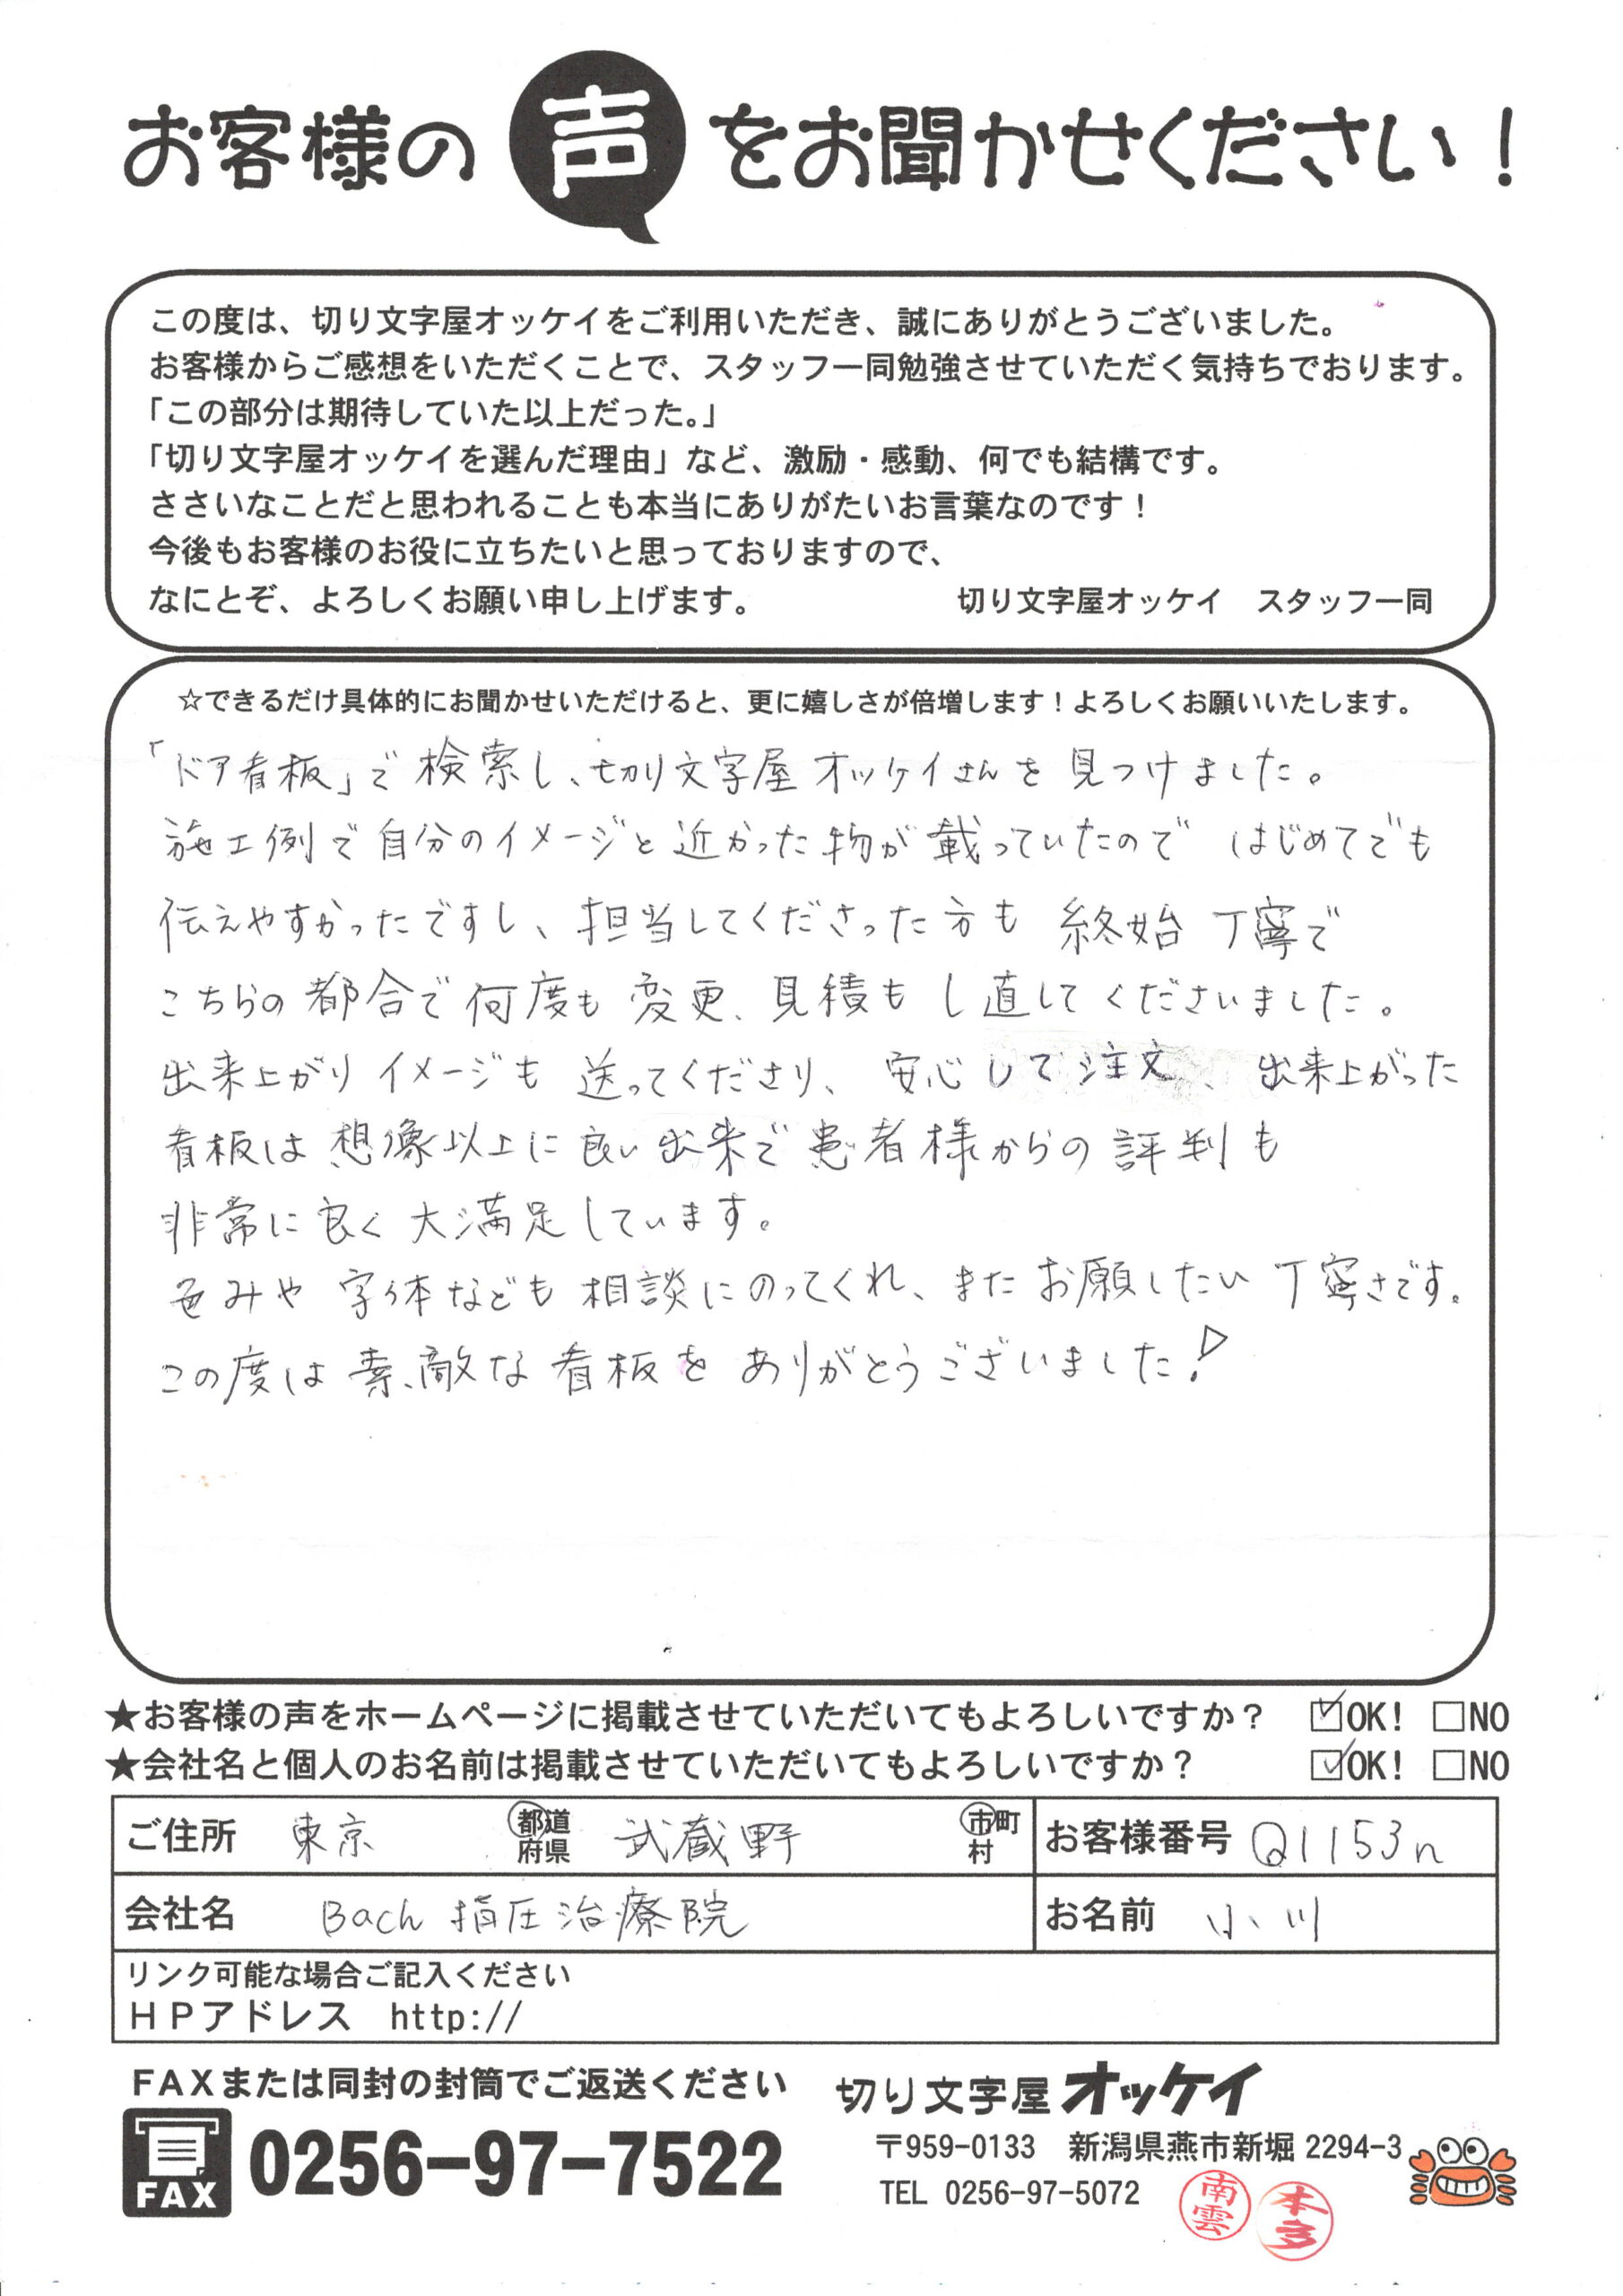 お客様の声をお聞かせください！
この度は、切り文字屋オッケイをご利用いただき、誠にありがとうございました。
お客様からご感想をいただくことで、スタッフ一同勉強させていただく気持ちでおります。
「この部分は期待していた以上だった。」
「切り文字屋オッケイを選んだ理由」など、激励・感動、何でも結構です。
ささいなことだと思われることも本当にありがたいお言葉なのです！
今後もお客様のお役に立ちたいと思っておりますので、
なにとぞ、よろしくお願い申し上げます。　切り文字屋オッケイ　スタッフ一同
☆できるだけ具体的にお聞かせいただけると、更に嬉しさが倍増します！よろしくお願いいたします。
「ドア看板」で検索し、切り文字屋オッケイさんを見つけました。
施工例で自分のイメージと近かった物が載っていたので はじめてでも
伝えやすかったですし、担当してくださった方も 終始 丁寧で
こちらの都合で何度も変更、見積もし直してくださいました。
出来上がりイメージも送ってくださり、安心して注文、出来上がった
看板は想像以上に良い出来で患者様からの評判も
非常に良く大満足しています。
色みや字体なども相談にのってくれ、またお願したい丁寧さです。
この度は素敵な看板をありがとうございました！
★お客様の声をホームページに掲載させていただいてもよろしいですか？　☑OK!　□NO
★会社名と個人のお名前は掲載させていただいてもよろしいですか？　☑OK!　□NO
ご住所　東京　都道府県　武蔵野　市町村　お客様番号　Q1153n
会社名　Bach 指圧治療院　お名前　小川
リンク可能な場合ご記入ください
ＨＰアドレス　http://
ＦＡＸまたは同封の封筒でご返送ください
FAX 0256-97-7522
切り文字屋オッケイ
〒959-0133　新潟県燕市新堀 2294-3
TEL 0256-97-5072
南雲
本多